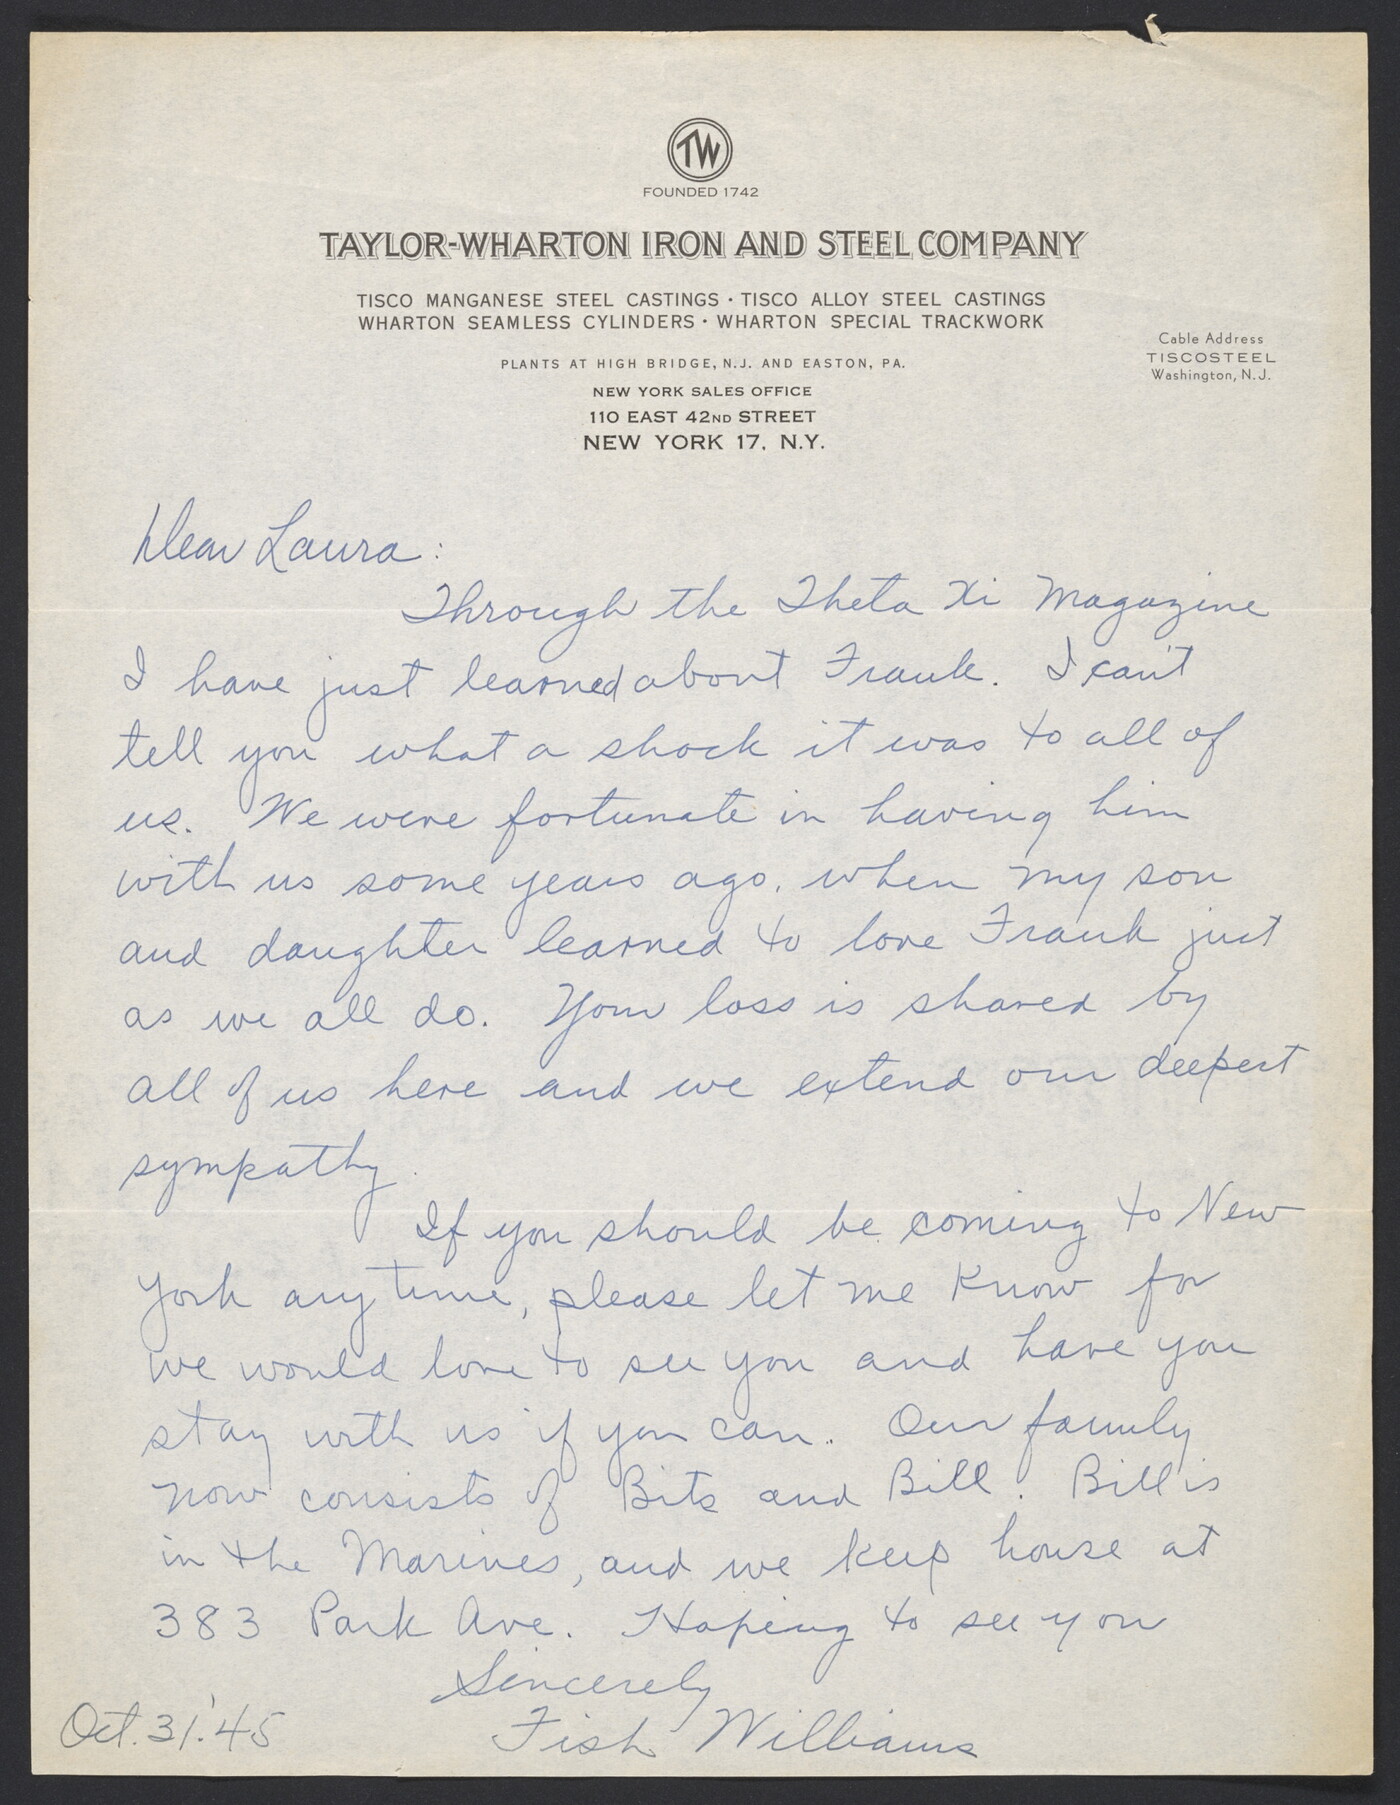 TW
FOUNDED 1742
TAYLOR-WHARTON IRON AND STEEL COMPANY
TISCO MANGANESE STEEL CASTINGS · TISCO ALLOY STEEL CASTINGS
WHARTON SEAMLESS CYLINDERS · WHARTON SPECIAL TRACKWORK
PLANTS AT HIGH BRIDGE, N.J. AND EASTON, PA.
NEW YORK SALES OFFICE
110 EAST 42ND STREET
NEW YORK 17, N.Y.
Cable Address
TISCOSTEEL
Washington, N.J.
Dear Laura:
Through the Theta Xi Magazine
I have just learned about Frank. I can't
tell you what a shock it was to all of
us. We were fortunate in having him
with us some years ago, when my son
and daughter learned to love Frank just
as we all do. Your loss is shared by
all of us here and we extend our deepest
sympathy.
If you should be coming to New
York any time, please let me know for
we would love to see you and have you
stay with us if you can. Our family
now consists of Bits and Bill. Bill is
in the Marines, and we keep house at
383 Park Ave. Hoping to see you
Sincerely
Fish Williams
Oct. 31.'45